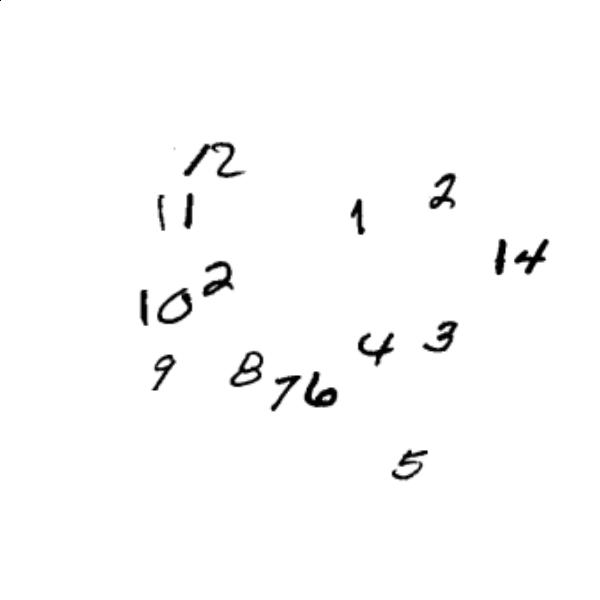 12
11 1 2
14
10 2
4 3
9 8 7 6
5